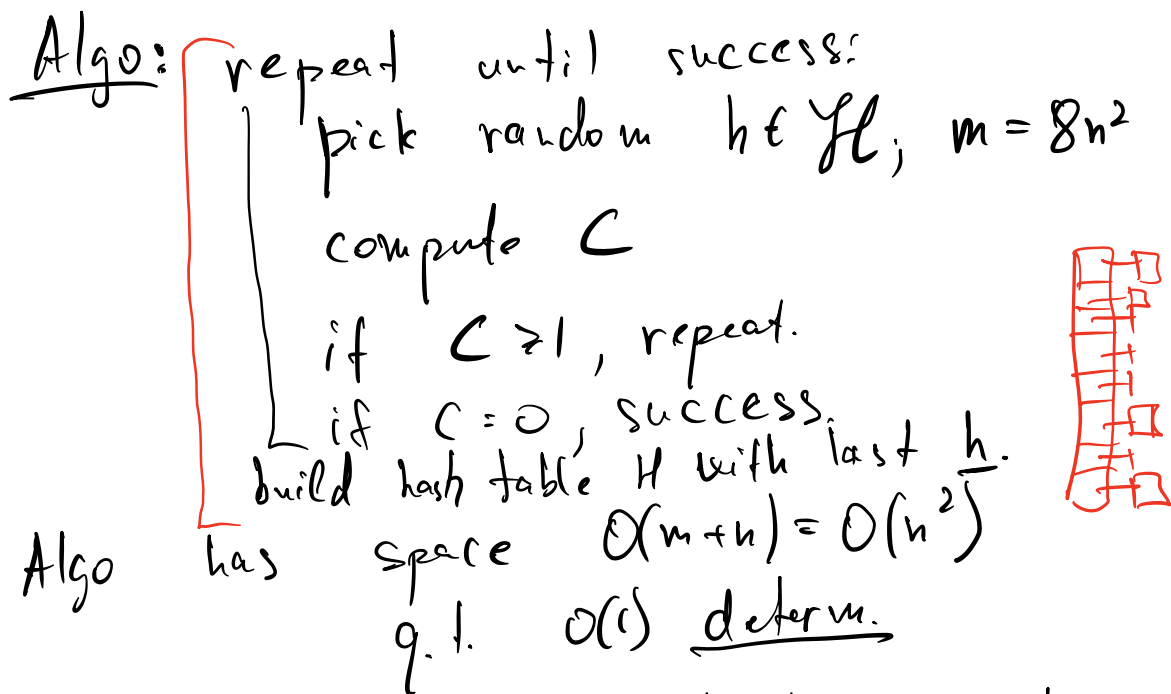 Algo: repeat until success:
pick random h ∈ ℋ, m = 8n²
compute C
if C ≥ 1, repeat.
if C = 0, success.
build hash table H with last h.
Algo has space O(m+n) = O(n²)
q.t. O(1) determ.